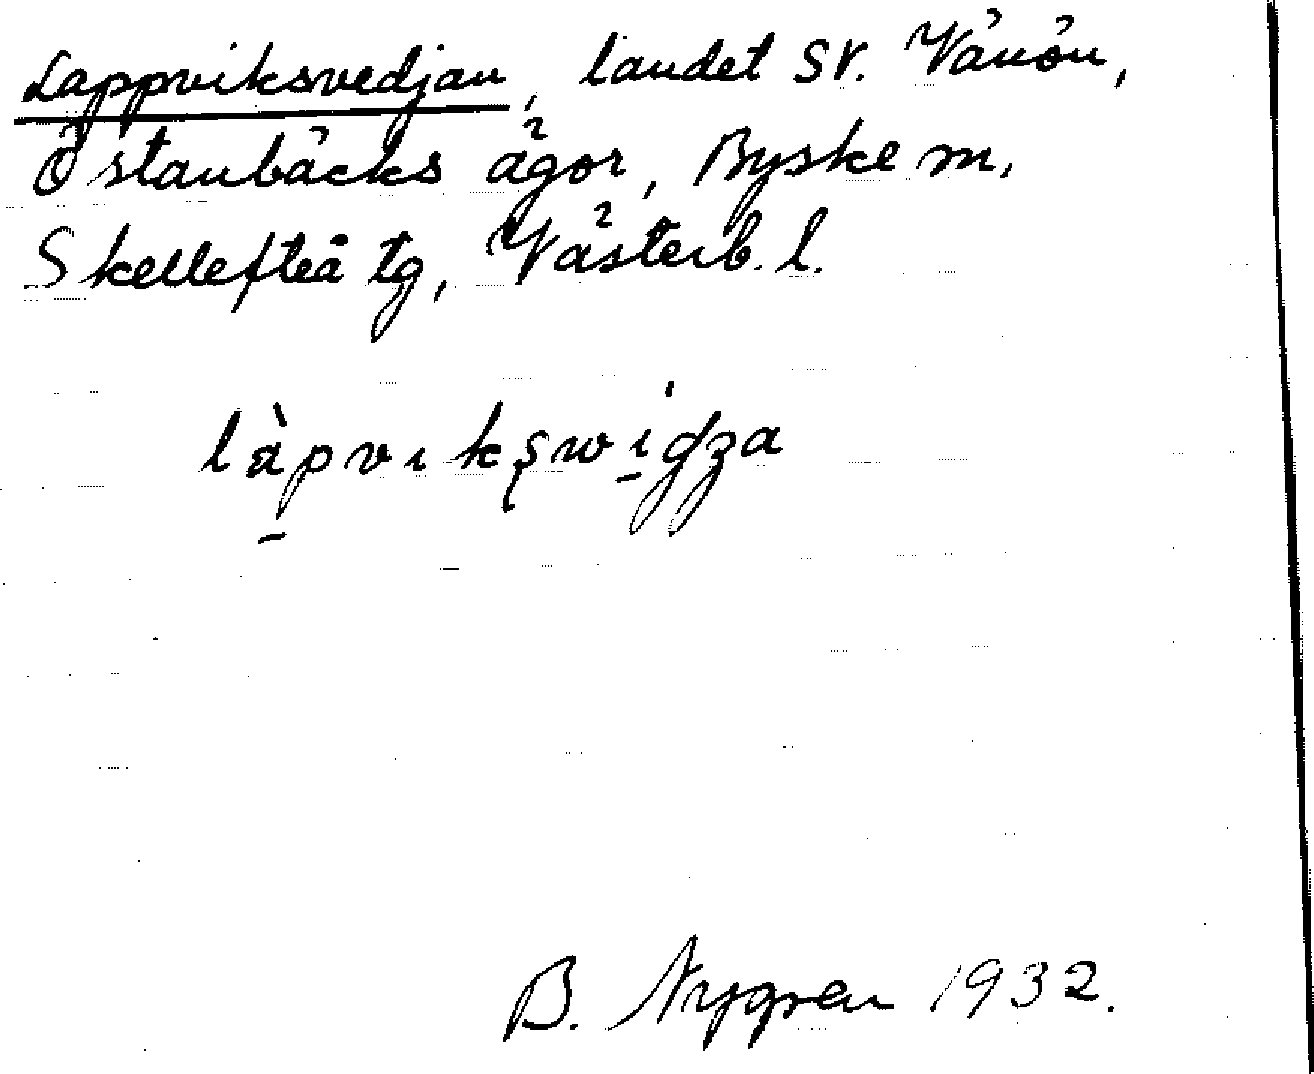 Lappviksvedjan, landet SV. Vänön,
Östanbäcks ägor, Byske m,
Skellefteå tg, Västerb. l.
làpvikşwidza
B. Nygren 1932.